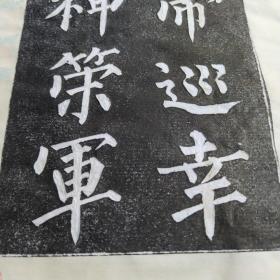 帝巡幸
神策軍